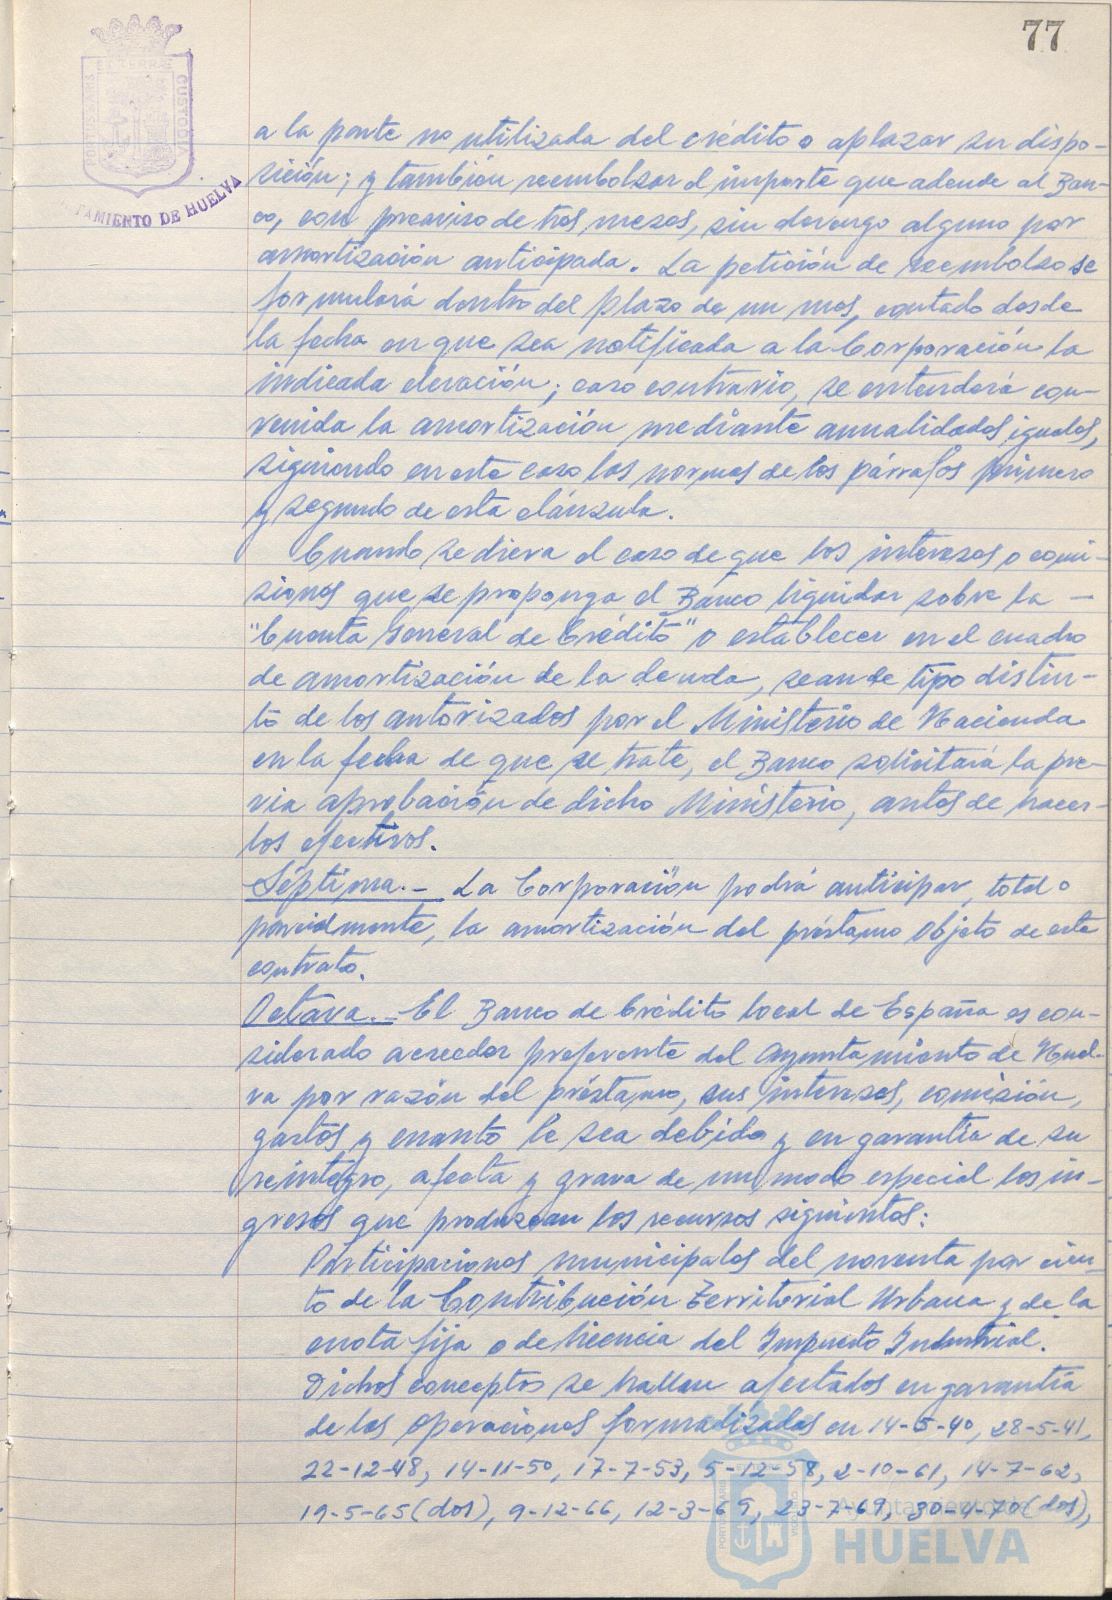 77
PORTUS MARIS ET TERRAE CUSTODIA
TAMIENTO DE HUELVA
a la parte no utilizada del crédito o aplazar su dispo-
sición; y también reembolsar el importe que adeude al Ban-
co, con preaviso de tres meses, sin devengo alguno por
amortización anticipada. La petición de reembolso se
formulará dentro del plazo de un mes, contado desde
la fecha en que sea notificada a la Corporación la
indicada elevación; caso contrario, se entenderá con-
venida la amortización mediante anualidades iguales,
siguiendo en este caso las normas de los párrafos primero
y segundo de esta cláusula.
Cuando se diera el caso de que los intereses o comi-
siones que se proponga el Banco liquidar sobre la -
"Cuenta General de Crédito" o establecer en el cuadro
de amortización de la deuda, sean de tipo distin-
to de los autorizados por el Ministerio de Hacienda
en la fecha de que se trate, el Banco solicitará la pre-
via aprobación de dicho Ministerio, antes de hacer-
los efectivos.
Séptima.- La Corporación podrá anticipar, total o
parcialmente, la amortización del préstamo objeto de este
contrato.
Octava.- El Banco de Crédito Local de España es con-
siderado acreedor preferente del Ayuntamiento de Huel-
va por razón del préstamo, sus intereses, comisión,
gastos y cuanto le sea debido y en garantía de su
reintegro, afecta y grava de un modo especial los in-
gresos que produzcan los recursos siguientes:
Participaciones municipales del noventa por cien-
to de la Contribución Territorial Urbana y de la
cuota fija o de licencia del Impuesto Industrial.
Dichos conceptos se hallan afectados en garantía
de las operaciones formalizadas en 14-5-40, 28-5-41,
22-12-48, 14-11-50, 17-7-53, 5-12-58, 2-10-61, 14-7-62,
19-5-65 (dos), 9-12-66, 12-3-69, 23-7-69, 30-4-70 (dos),
Ayuntamiento de
HUELVA